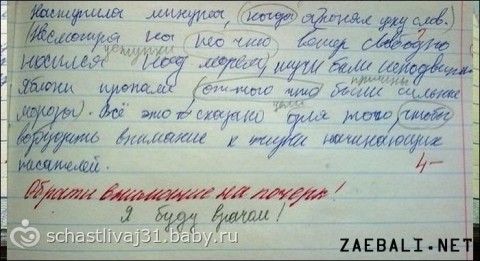 Наступила минута, (когда я понял цену слов.)
(Несмотря на то что) ветер свободно
уступки
носился над морем, тучи были неподвижны.
причины
Яблони пропали (от того что были сильные
цели
морозы). Всё это сказано для того (чтобы
возбудить внимание к жизни начинающих
писателей.
4-
Обрати внимание на почерк!
Я буду врачом!
schastlivaj31.baby.ru
ZAEBALI.NET